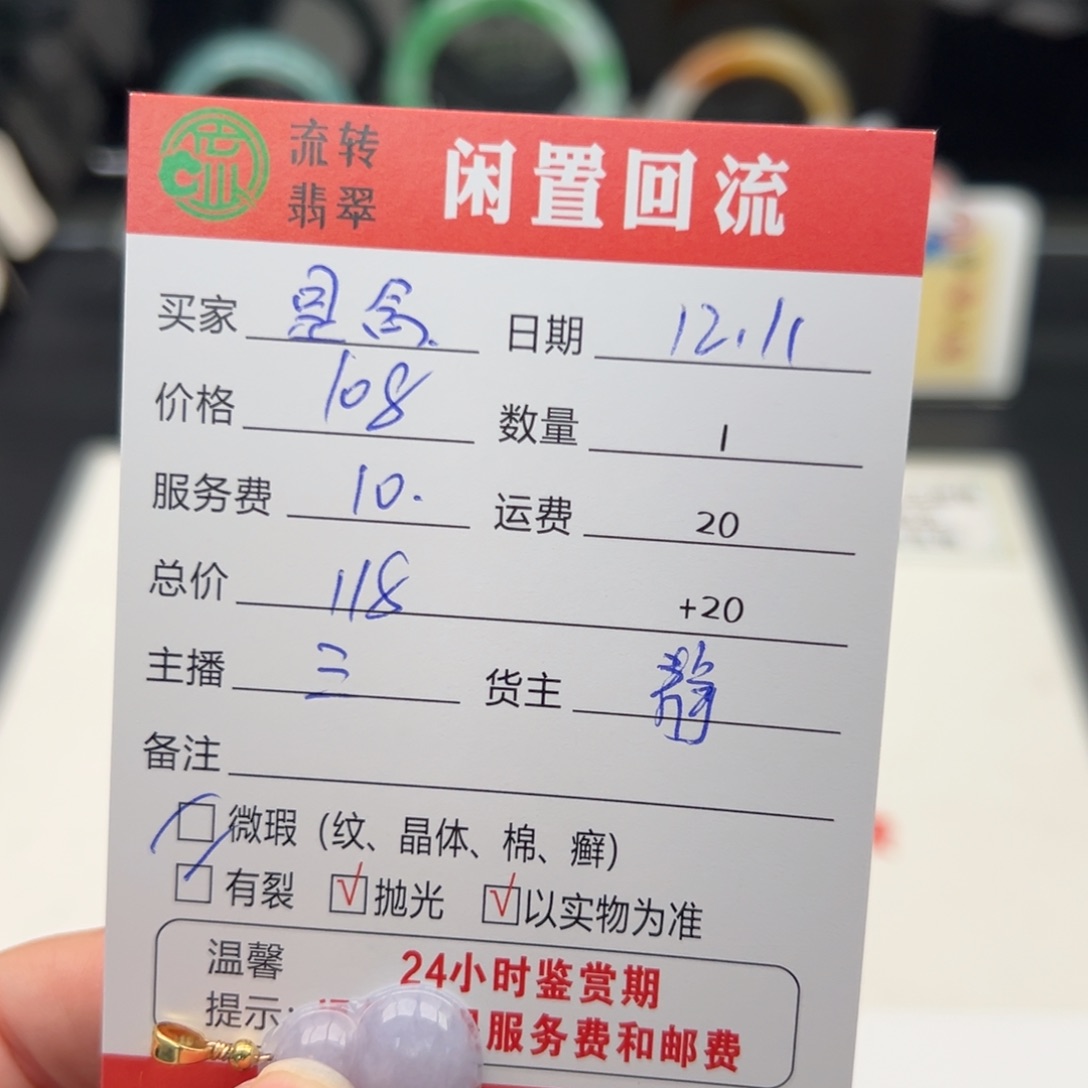 流转
翡翠
闲置回流
买家 日期 12.11
价格 108 数量 1
服务费 10. 运费 20
总价 118 +20
主播 三 货主 静
备注
微瑕（纹、晶体、棉、癣）
有裂 √抛光 √以实物为准
温馨 24小时鉴赏期
提示： 服务费和邮费